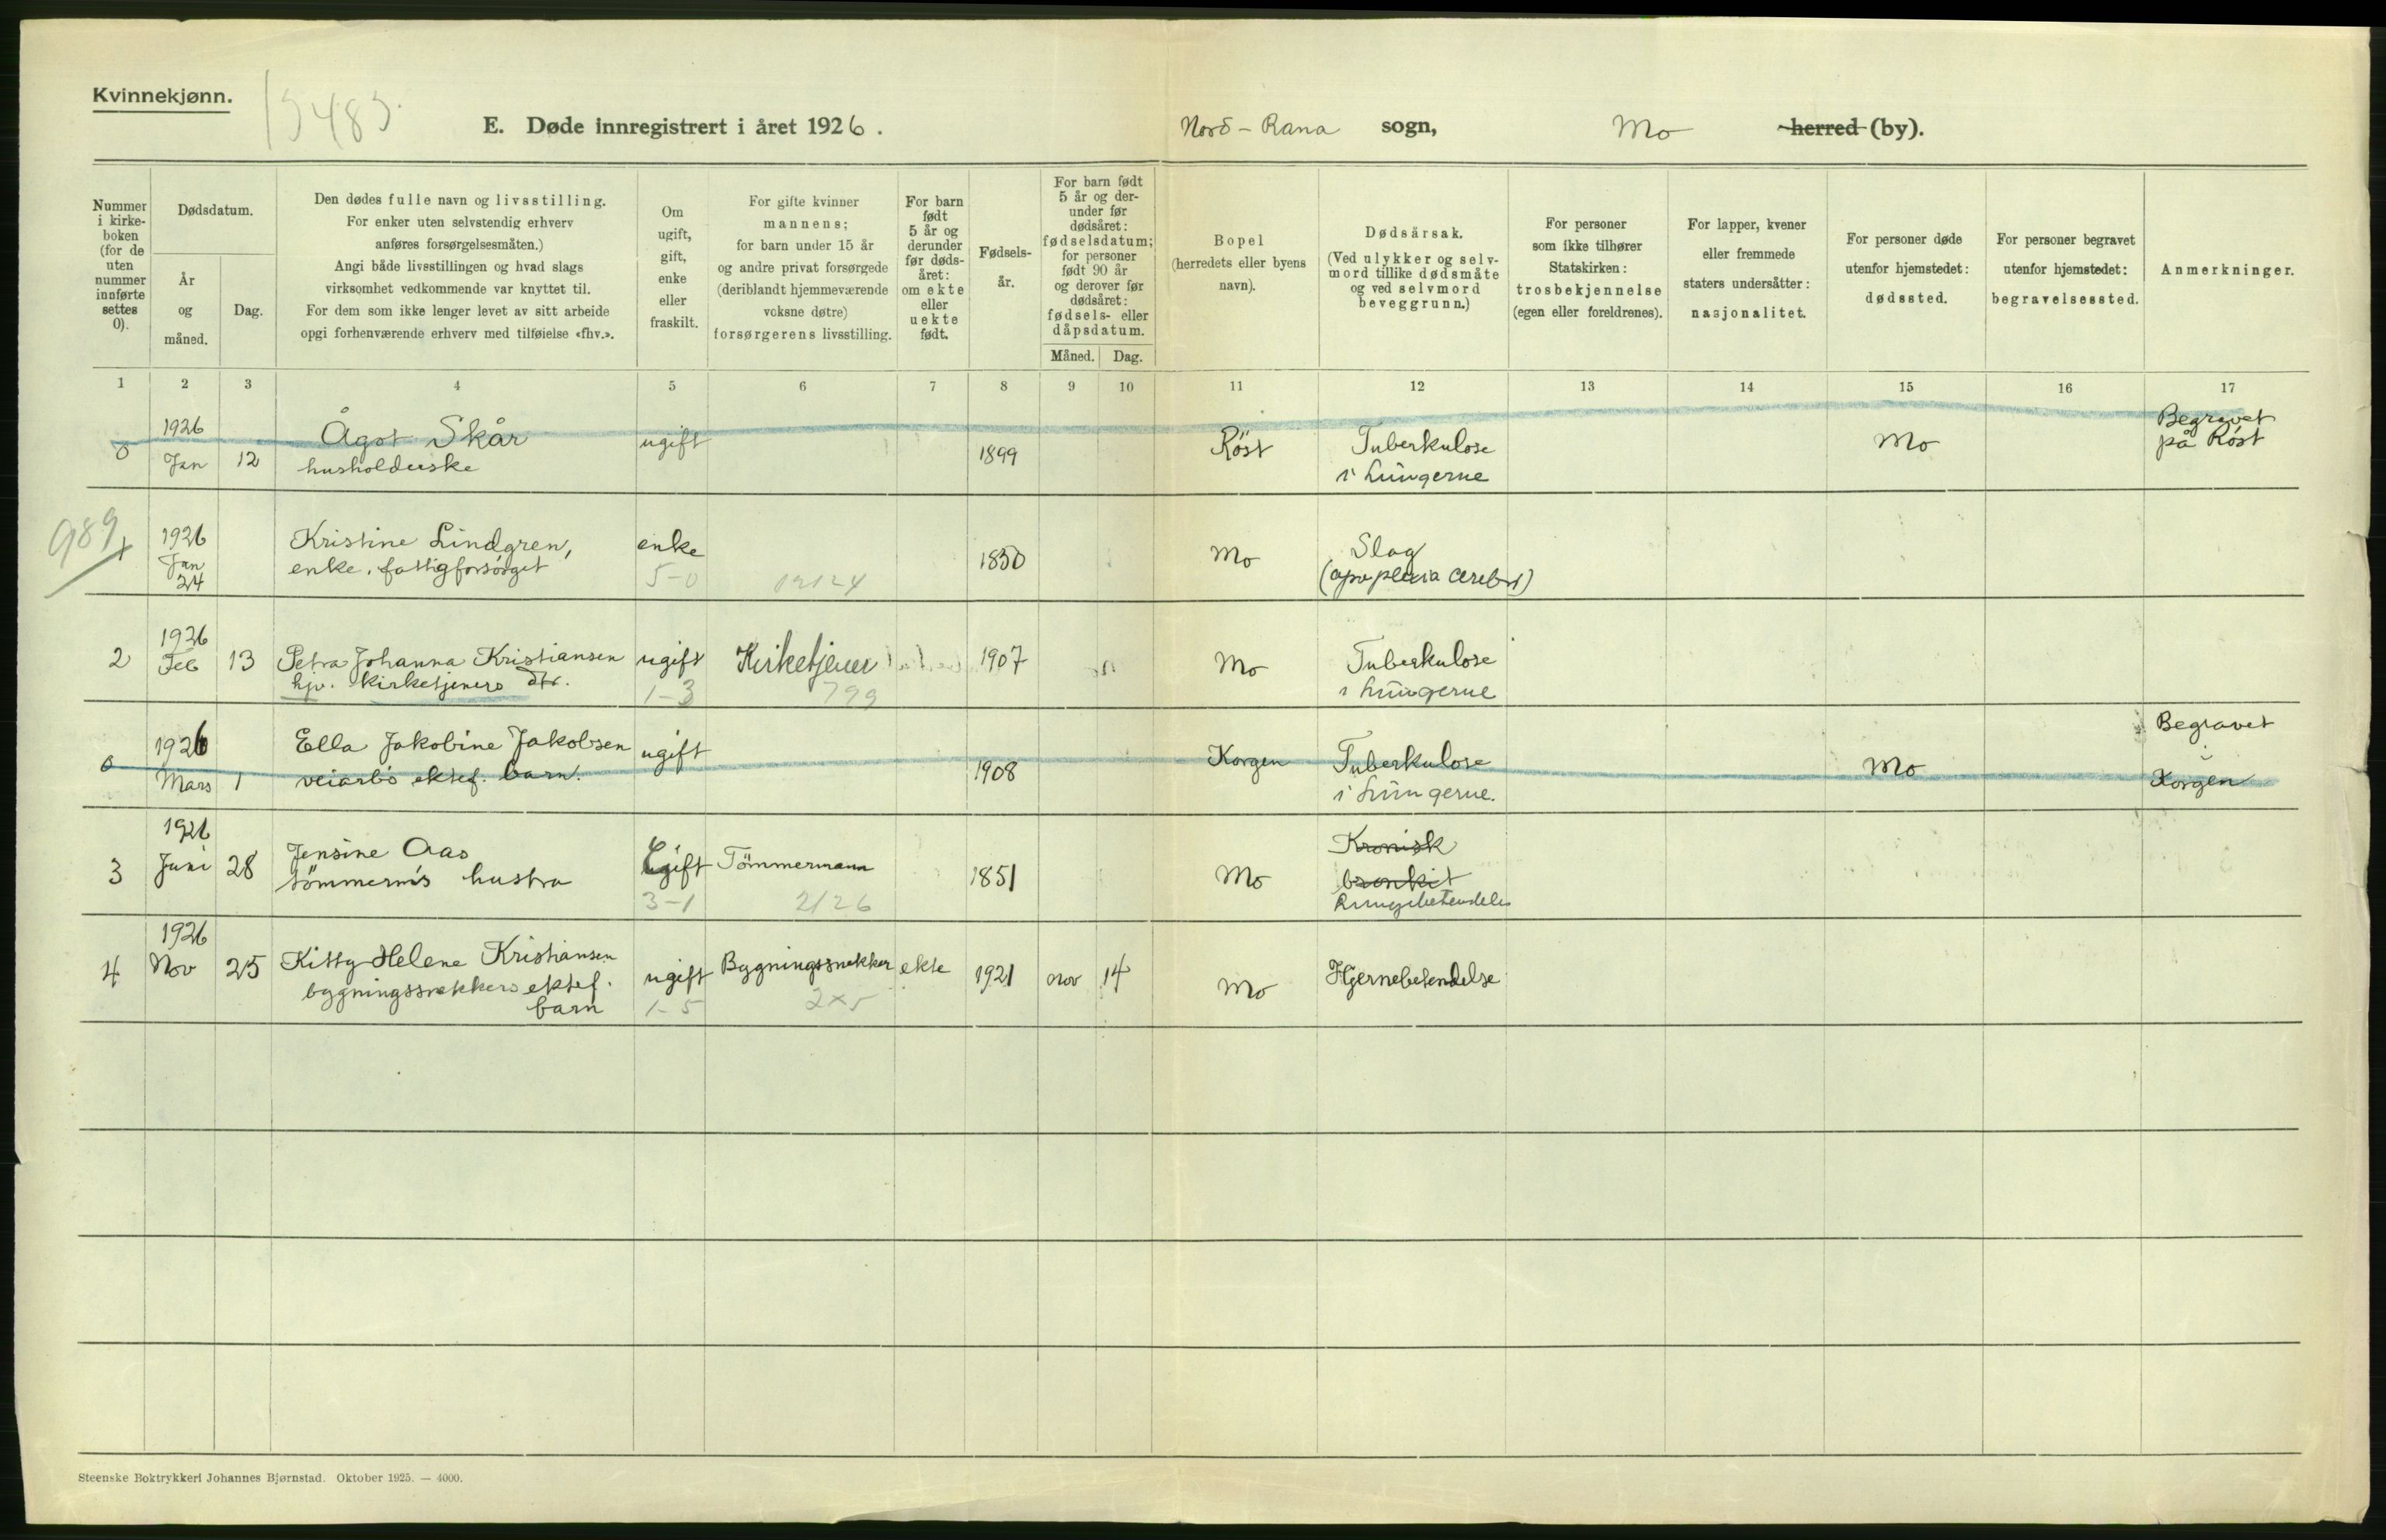 Kvinnekjønn.
E. Døde innregistrert i året 1926.
Nord-Rana sogn, Mo herred (by).
Nummer i kirke-boken (for de uten nummer innførte settes 0).
Dødsdatum.
År og måned.
Dag.
Den dødes fulle navn og livsstilling.
For enker uten selvstendig erhverv
anføres forsørgelsesmåten.)
Angi både livsstillingen og hvad slags
virksomhet vedkommende var knyttet til.
For dem som ikke lenger levet av sitt arbeide
opgi forhenværende erhverv med tilføielse «fhv.».
Om ugift, gift, enke eller fraskilt.
For gifte kvinner
mannens;
for barn under 15 år
og andre privat forsørgede
(deriblandt hjemmeværende
voksne døtre)
forsørgerens livsstilling.
For barn født 5 år og derunder før døds-året: om ekte eller uekte født.
Fødsels-år.
For barn født 5 år og der-under før dødsåret: fødselsdatum; for personer født 90 år og derover før dødsåret: fødsels- eller dåpsdatum.
Måned. Dag.
Bopel
(herredets eller byens
navn).
Dødsårsak.
(Ved ulykker og selv-
mord tillike dødsmåte
og ved selvmord
beveggrunn.)
For personer
som ikke tilhører
Statskirken:
trosbekjennelse
(egen eller foreldrenes).
For lapper, kvener
eller fremmede
staters undersåtter:
nasjonalitet.
For personer døde
utenfor hjemstedet:
dødssted.
For personer begravet
utenfor hjemstedet:
begravelsessted.
Anmerkninger.
1 2 3 4 5 6 7 8 9 10 11 12 13 14 15 16 17
0 1926 Jan 12 Ågot Skår ugift 1899 Röst Tuberkulose Mo Begravet
husholderske i Lungerne på Röst
989
1 1926 Jan 24 Kristine Lindgren, enke 1850 Mo Slag
enke, fattigforsörget 5-0 12124 (apoplexia cerebri)
2 1926 Feb 13 Petra Johanna Kristiansen ugift Kirketjener 1907 Mo Tuberkulose
hjv. kirketjeners dtr. 1-3 799 i Lungerne
0 1926 Mars 1 Ella Jakobine Jakobsen ugift 1908 Korgen Tuberkulose Mo Begravet
veiarb's ektef. barn. i Lungerne. i Korgen
3 1926 Juni 28 Jensine Aas gift Tömmermann 1851 Mo Kronisk
tömmerm's hustru 3-1 2126 bronkit
Lungebetendelse
4 1926 Nov 25 Kitty Helene Kristiansen ugift Bygningssnekker ekte 1921 nov 14 Mo Hjernebetendelse
bygningssnekkers ektef. 1-5 2x5
barn
Steenske Boktrykkeri Johannes Bjørnstad. Oktober 1925. — 4000.